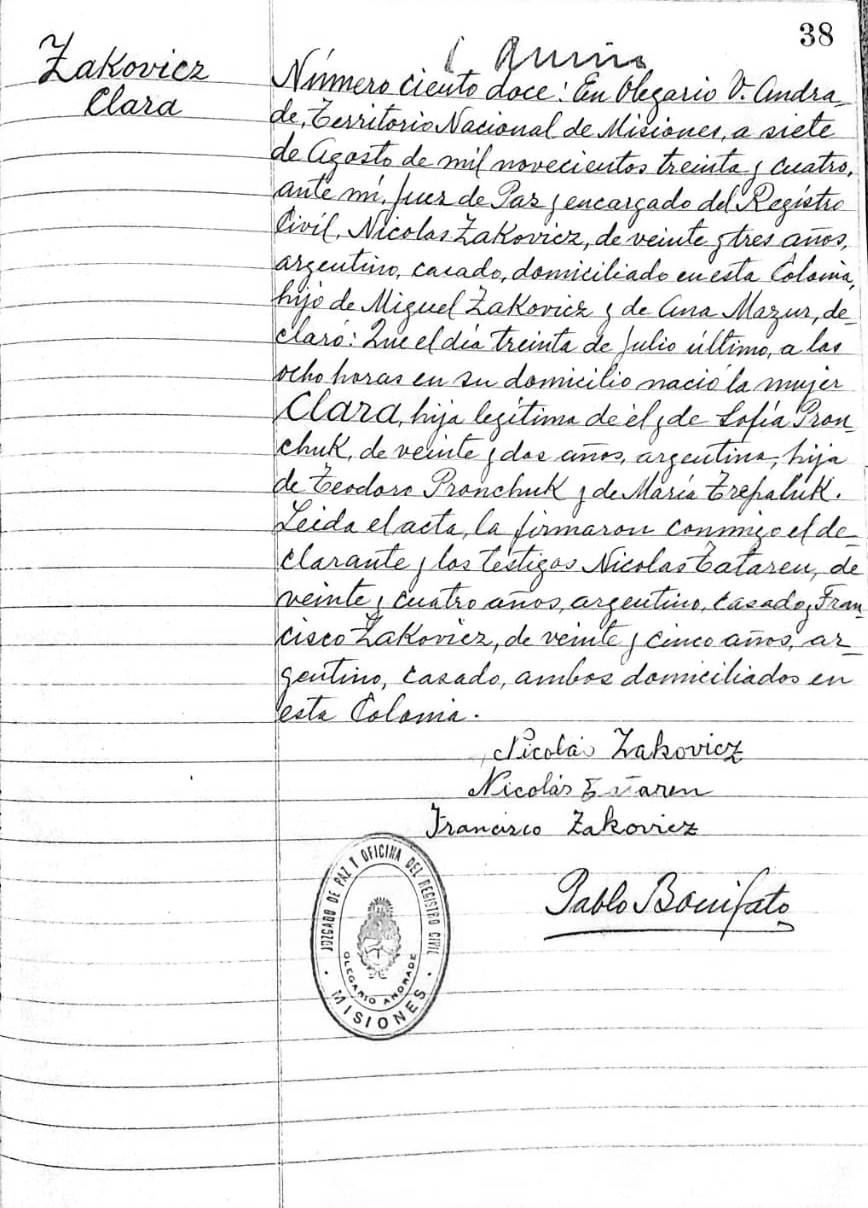 38
Zakovicz
Clara
Número ciento doce: En Olegario V. Andra_
de, Territorio Nacional de Misiones, a siete
de Agosto de mil novecientos treinta y cuatro,
ante mí, Juez de Paz y encargado del Registro
Civil, Nicolas Zakovicz, de veinte y tres años,
argentino, casado, domiciliado en esta Colonia,
hijo de Miguel Zakovicz y de Ana Mazur, de_
claró: Que el día treinta de Julio último, a las
ocho horas en su domicilio nació la mujer
Clara, hija legítima de él y de Sofía Pron_
chuk, de veinte y dos años, argentina, hija
de Teodoro Pronchuk y de María Trepaluk.
Leida el acta, la firmaron conmigo el de_
clarante y los testigos Nicolas Tataren, de
veinte y cuatro años, argentino, casado y Fran_
cisco Zakovicz, de veinte y cinco años, ar_
gentino, casado, ambos domiciliados en
esta Colonia.
Nicolás Zakovicz
Nicolás Tataren
Francisco Zakovicz
Pablo Bonifato
JUZGADO DE PAZ Y OFICINA DEL REGISTRO CIVIL
OLEGARIO ANDRADE
MISIONES